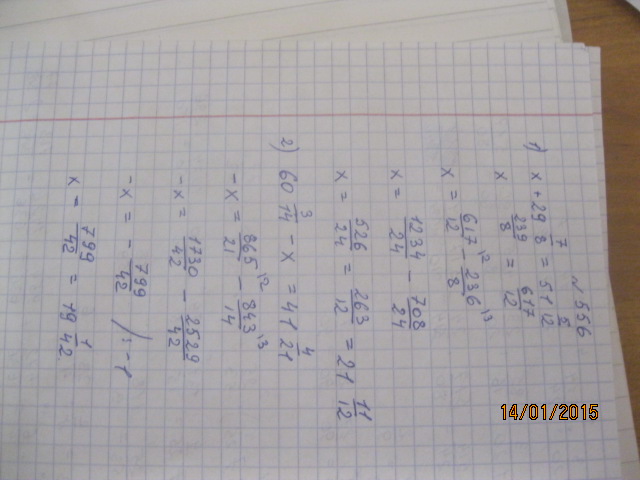 № 556
1) x + 29 7/8 = 51 5/12
x 239/8 = 617/12
x = 617/12 ¹² - 236/8 ¹³
x = 1234/24 - 708/24
x = 526/24 = 263/12 = 21 11/12
2) 60 3/14 - x = 41 4/21
-x = 865/21 ¹² - 843/14 ¹³
-x = 1730/42 - 2529/42
-x = - 799/42 /:-1
x = 799/42 = 19 1/42
14/01/2015